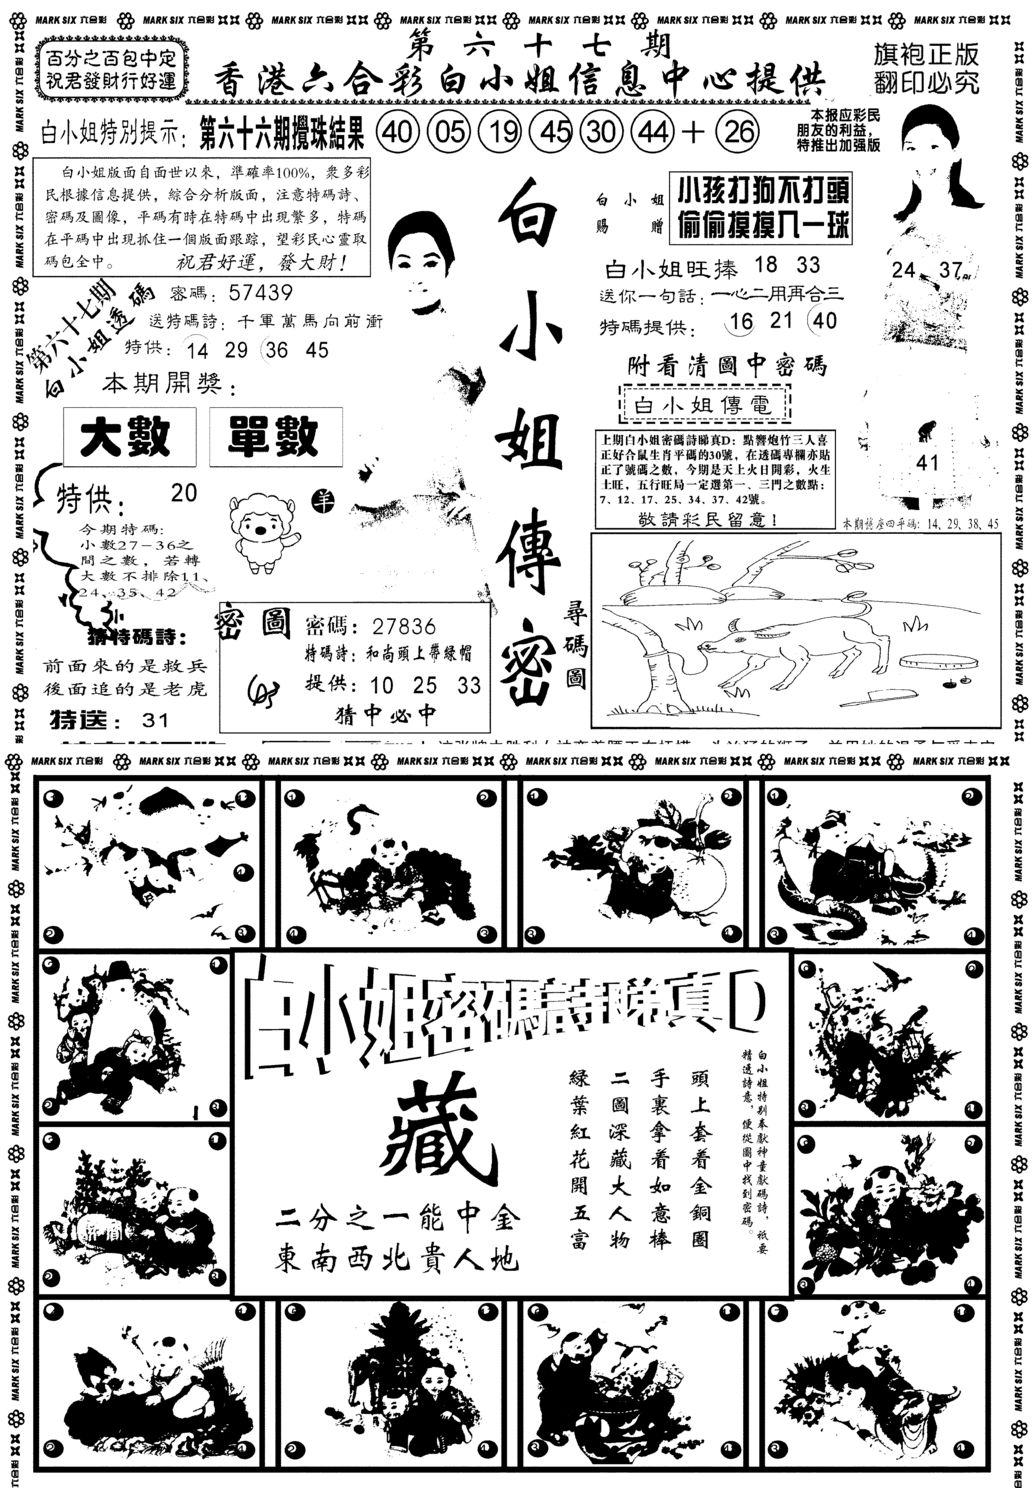 MARK SIX 六合彩
百分之百包中定
祝君發財行好運
第六十七期
香港六合彩白小姐信息中心提供
旗袍正版
翻印必究
白小姐特別提示:
第六十六期攪珠結果 40 05 19 45 30 44 + 26
本报应彩民
朋友的利益,
特推出加强版
白小姐版面自面世以來，準確率100%，衆多彩
民根據信息提供，綜合分析版面，注意特碼詩、
密碼及圖像，平碼有時在特碼中出現繁多，特碼
在平碼中出現抓住一個版面跟踪，望彩民心靈取
碼包全中。 祝君好運，發大財！
第六十七期
白小姐透碼
密碼: 57439
送特碼詩: 千軍萬馬向前衝
特供: 14 29 36 45
本期開獎:
大數 單數
特供: 20
羊
今期特碼:
小數27-36之
間之數，若轉
大數不排除11、
24、35、42
小
猜特碼詩:
前面來的是救兵
後面追的是老虎
特送: 31
密圖
密碼: 27836
特碼詩: 和尚頭上帶綠帽
提供: 10 25 33
猜中必中
白小姐傳密
白小姐
賜贈
小孩打狗不打頭
偷偷摸摸入一球
白小姐旺捧 18 33
送你一句話: 一心二用再合三
特碼提供: 16 21 40
附看清圖中密碼
白小姐傳電
上期白小姐密碼詩睇真D: 點響炮竹三人喜
正好合鼠生肖平碼的30號，在透碼專欄亦貼
正了號碼之數，今期是天上火日開彩，火生
土旺，五行旺局一定選第一、三門之數點:
7、12、17、25、34、37、42號。
敬請彩民留意！
24 37
41
14、29、38、45
尋碼圖
白小姐密碼詩睇真D
藏
二分之一能中金
東南西北貴人地
白小姐特別奉獻神童獻碼詩，祇要
精透詩意，便從圖中找到密碼。
頭上套着金銅圈
手裏拿着如意棒
二圖深藏大人物
綠葉紅花開五富